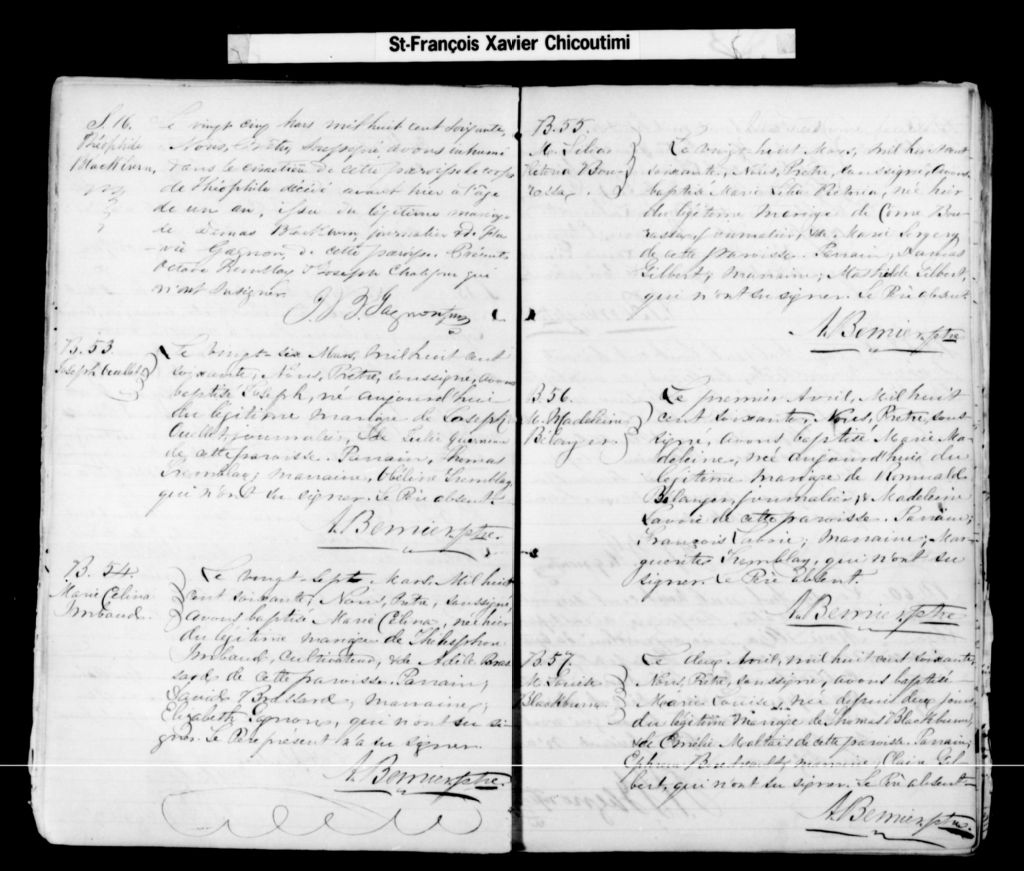 St-François Xavier Chicoutimi
S. 16.
Théophile
Blackburn,
Le vingt cinq Mars mil huit cent soixante,
Nous, Prêtre, soussigné avons inhumé
dans le cimetière de cette paroisse le corps
de Théophile décédé avant hier à l'âge
de un an, issu du légitime mariage
de Damas Blackburn journalier & de
Gagnon, de cette paroisse. Présents
Octave Tremblay & Joseph qui
n'ont su signer.
Gagnon ptre
B. 53.
Joseph Ouellet
Le vingt-six Mars, mil huit cent
soixante, Nous, Prêtre, soussigné, avons
baptisé Joseph, né aujourd'hui
du légitime mariage de Joseph
Ouellet, journalier, & de Julie
de cette paroisse. Parrain, Thomas
Tremblay; marraine, Tremblay
qui n'ont su signer. Le Père absent.
A. Bernier, ptre.
B. 54.
Marie Célina
Imbaud.
Le vingt-sept Mars Mil huit
cent soixante, Nous, Prêtre, soussigné,
avons baptisé Marie Célina, née hier
du légitime mariage de Thélesphore
Imbaud, cultivateur, & de Adèle Bras-
sard de cette paroisse. Parrain,
David Brassard, marraine,
Elizabeth Gagnon, qui n'ont su si-
gner. Le Père présent n'a su signer.
A. Bernier, ptre.
B. 55.
M. Lilia
Victoria Bou-
rassa,
Le vingt-huit Mars, mil huit cent
soixante, Nous, Prêtre, soussigné, avons
baptisé Marie Lilia Victoria, née hier
du légitime mariage de Côme Bou-
rassa, journalier, & de Marie
de cette paroisse. Parrain, Damas
Gilbert; marraine, Mathilde Gilbert,
qui n'ont su signer. Le Père absent.
A. Bernier, ptre
B. 56.
M. Madeleine
Bélanger
Le premier Avril, Mil huit
cent soixante, Nous, Prêtre, sous-
signé, avons baptisé Marie Ma-
deleine, née aujourd'hui du
légitime mariage de Romuald
Bélanger, journalier, & Madeleine
Lavoie de cette paroisse. Parrain,
François Lavoie; marraine, Mar-
guerite Tremblay, qui n'ont su
signer. Le Père absent.
A. Bernier, ptre
B. 57.
M. Louise
Blackburn
Le deux Avril, mil huit cent soixante,
Nous, Prêtre, soussigné, avons baptisé
Marie Louise, née depuis deux jours
du légitime mariage de Thomas Blackburn,
& de Emélie Maltais de cette paroisse. Parrain,
Ephrem Boudreault; marraine, Claire Gil-
bert, qui n'ont su signer. Le Père absent
A. Bernier, ptre.